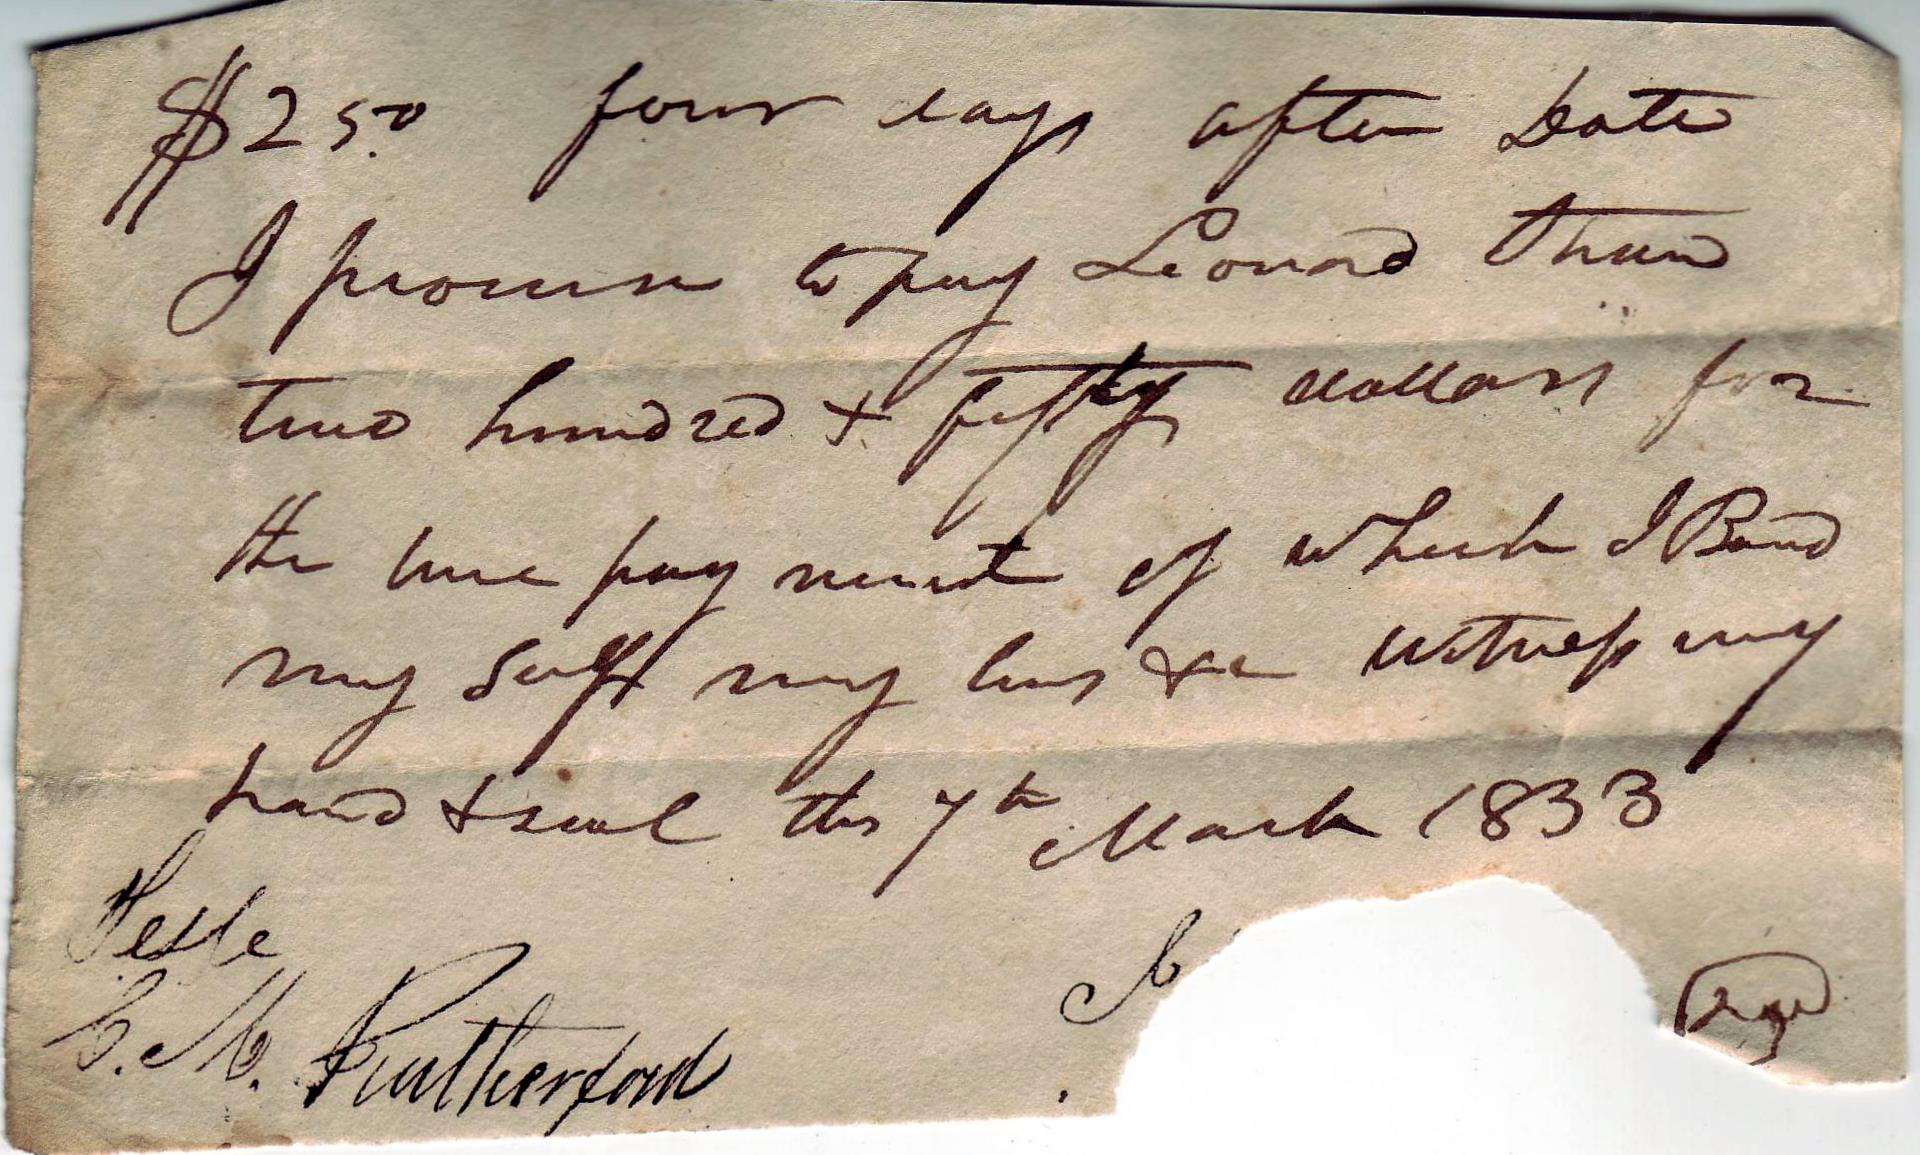 $250 four days after Date
I promise to pay Leonard
two hundred & fifty dollars for
the true pay ment of which I Band
my Self my heirs &c witness my
hand & seal this 7th March 1833
Teste
C. M. Rutherford